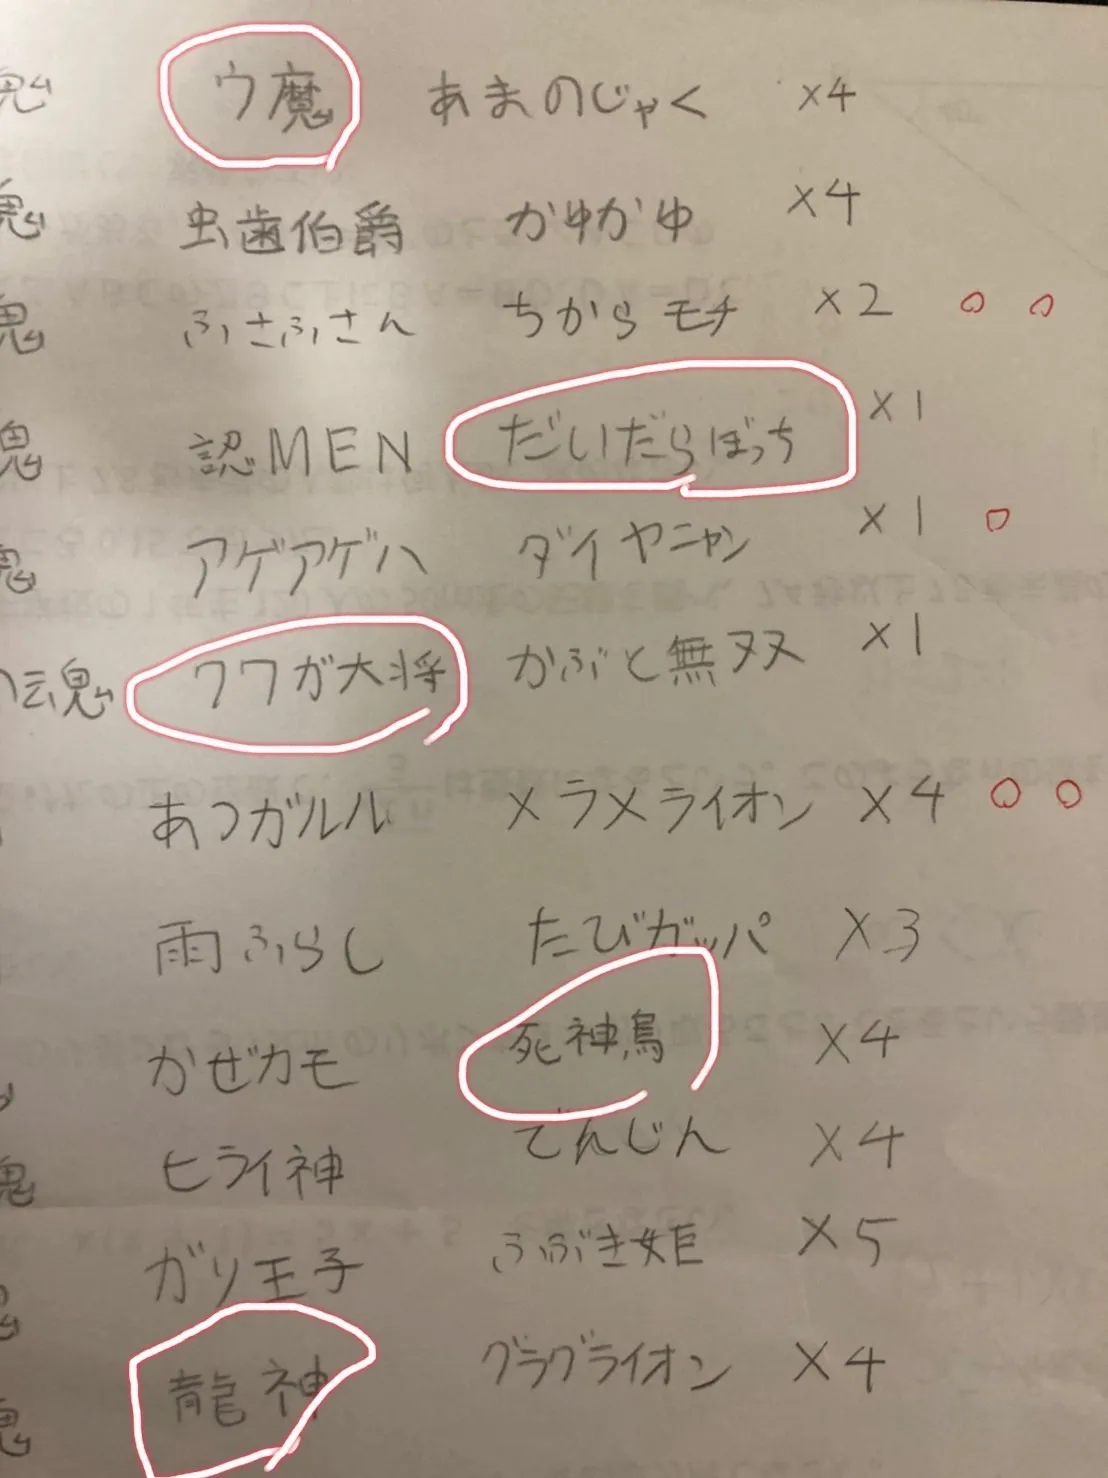 魂 ウ魔 あまのじゃく ×4
魂 虫歯伯爵 かゆかゆ ×4
魂 ふさふさん ちからモチ ×2 ○ ○
魂 認MEN だいだらぼっち ×1
魂 アゲアゲハ ダイヤニャン ×1 ○
魂 ワワガ大将 かぶと無双 ×1
あつガルル メラメライオン ×4 ○ ○
雨ふらし たびガッパ ×3
かぜカモ 死神鳥 ×4
魂 ヒライ神 でんじん ×4
ガリ王子 ふぶき姫 ×5
魂 龍神 グラグライオン ×4